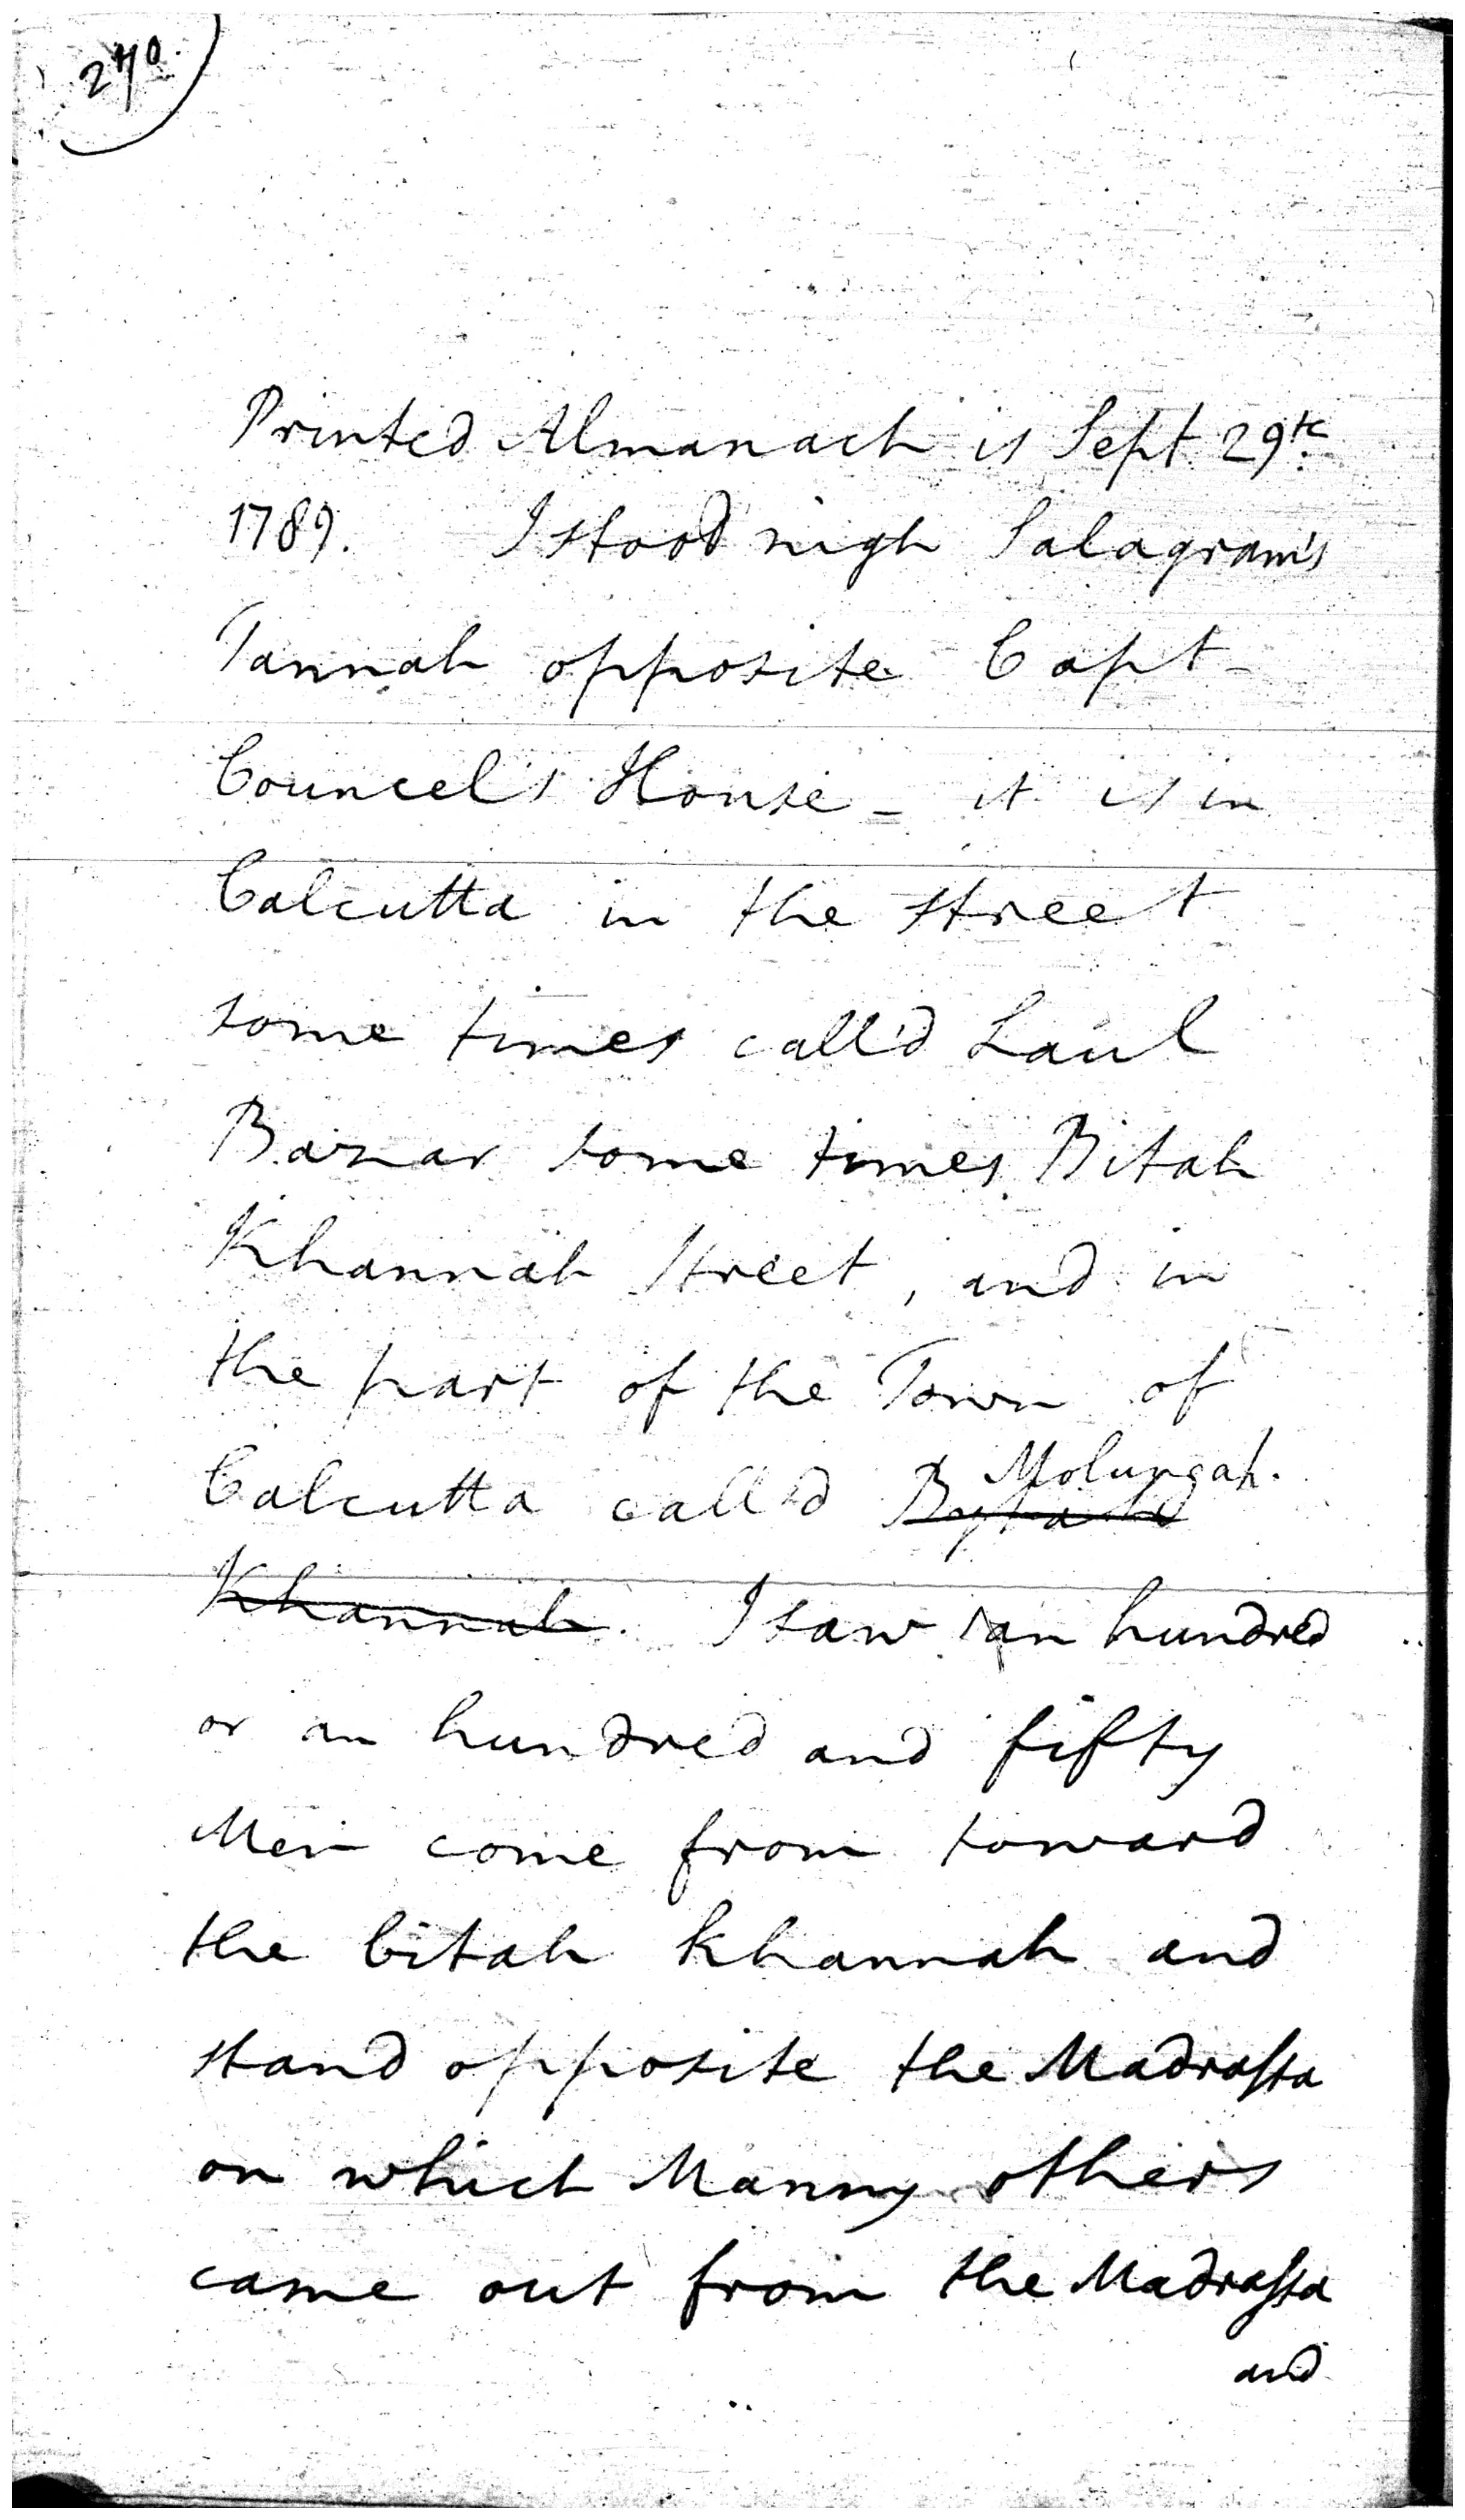 270.
Printed Almanach is Sept. 29th
1789. I stood nigh Salagram's
Tannah opposite Capt
Councel's House - it is in
Calcutta in the street
some times call'd Laul
Bazar some times Bitah
Khannah Street, and in
the part of the Town of
Molungah.
Calcutta call'd
Khannah. I saw an hundred
or an hundred and fifty
Men come from toward
the bitah khannah and
stand opposite the Madrassa
on which Manny others
came out from the Madrassa
and